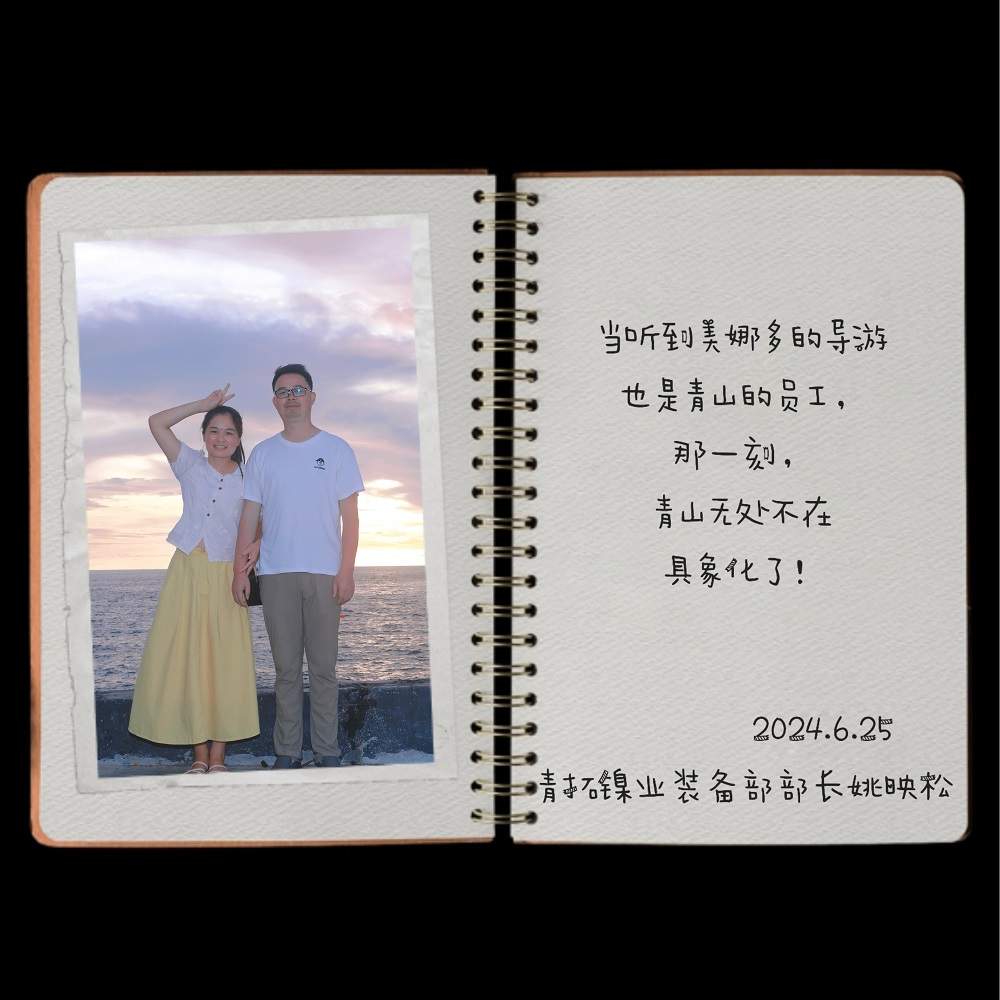 当听到美娜多的导游
也是青山的员工，
那一刻，
青山无处不在
具象化了！
2024.6.25
青拓镍业装备部部长姚映松